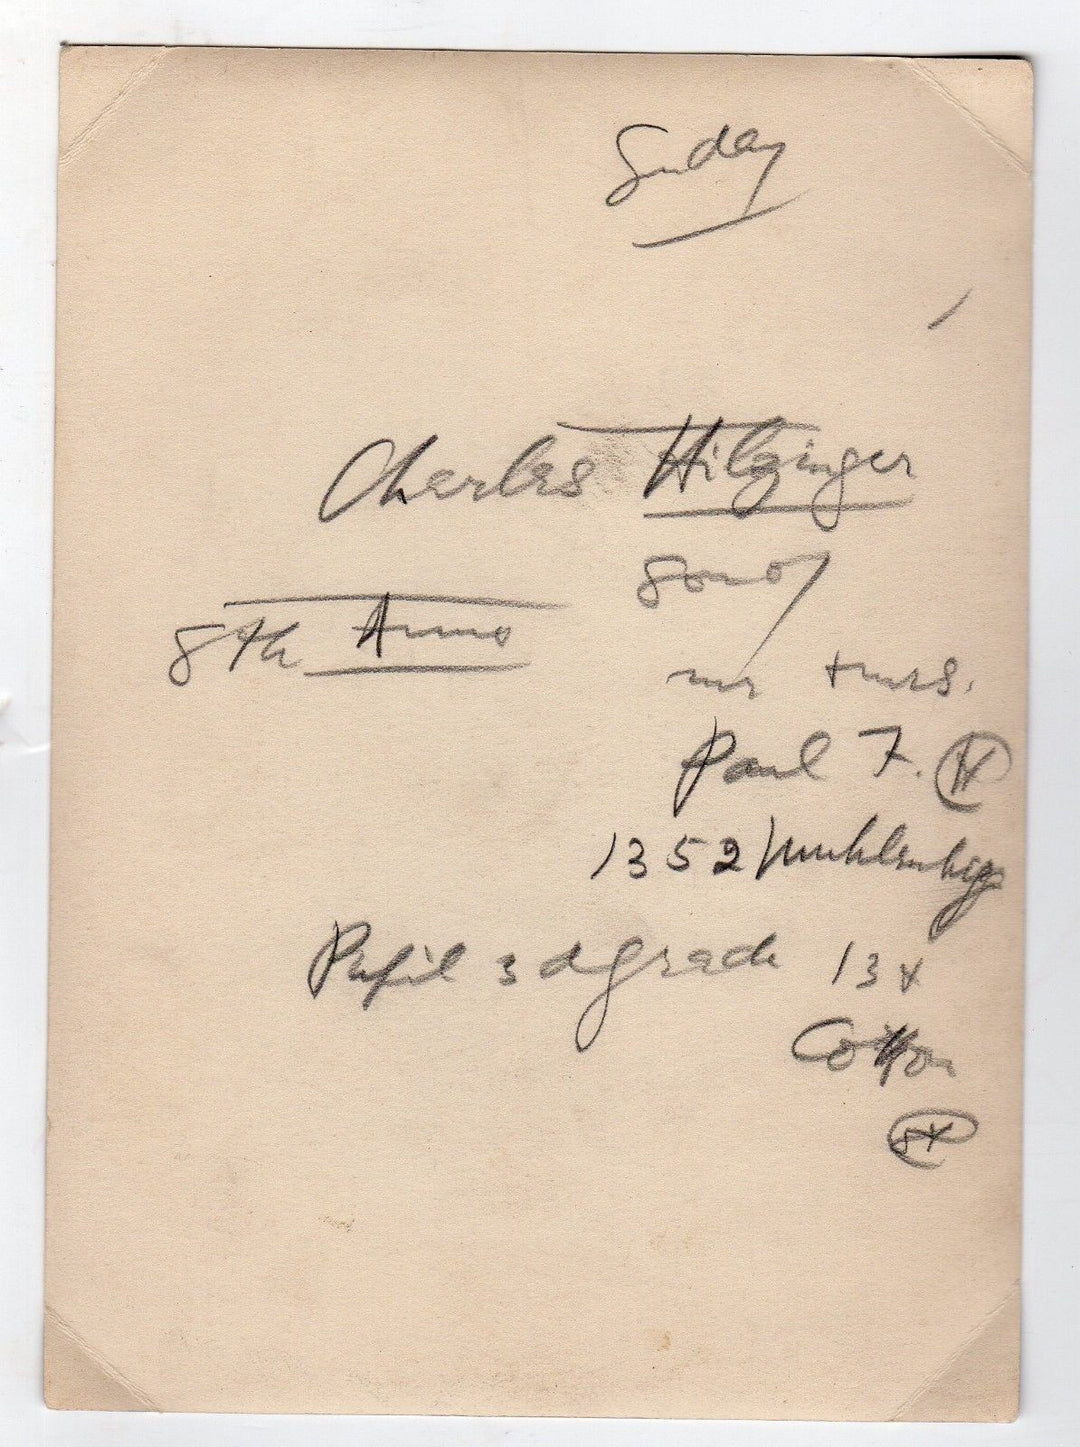 Sunday
Charles Hilzinger
son of
8th Anno
mr + mrs.
Paul F. H
1352 Muhlenberg
Pupil 3d grade 13 +
Cotton
st